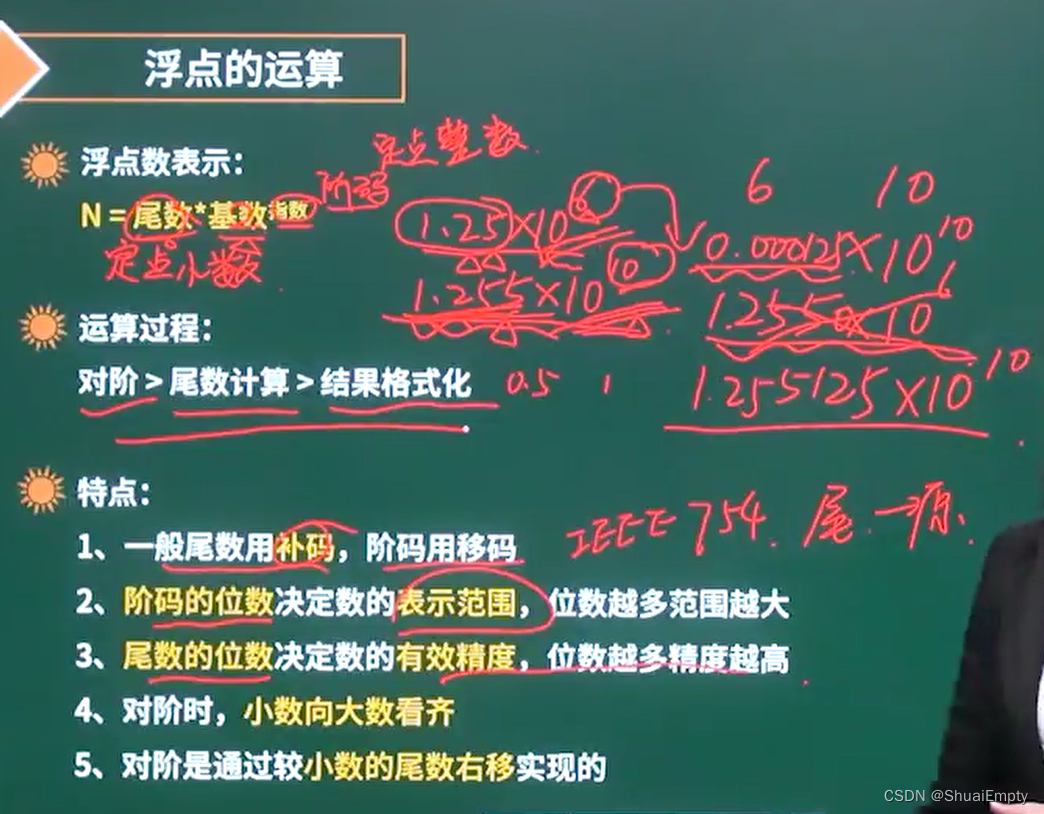 浮点的运算
定点整数
浮点数表示：
阶码
6 10
N = 尾数*基数指数
1.25×10 6
0.000125×10 10
定点小数
1.255×10 10
1.255 0×10 6
运算过程：
对阶 > 尾数计算 > 结果格式化
0.5 1
1.255125×10 10
特点：
1、一般尾数用补码，阶码用移码
IEEE 754. 尾一源、
2、阶码的位数决定数的表示范围，位数越多范围越大
3、尾数的位数决定数的有效精度，位数越多精度越高
4、对阶时，小数向大数看齐
5、对阶是通过较小数的尾数右移实现的
CSDN @ShuaiEmpty